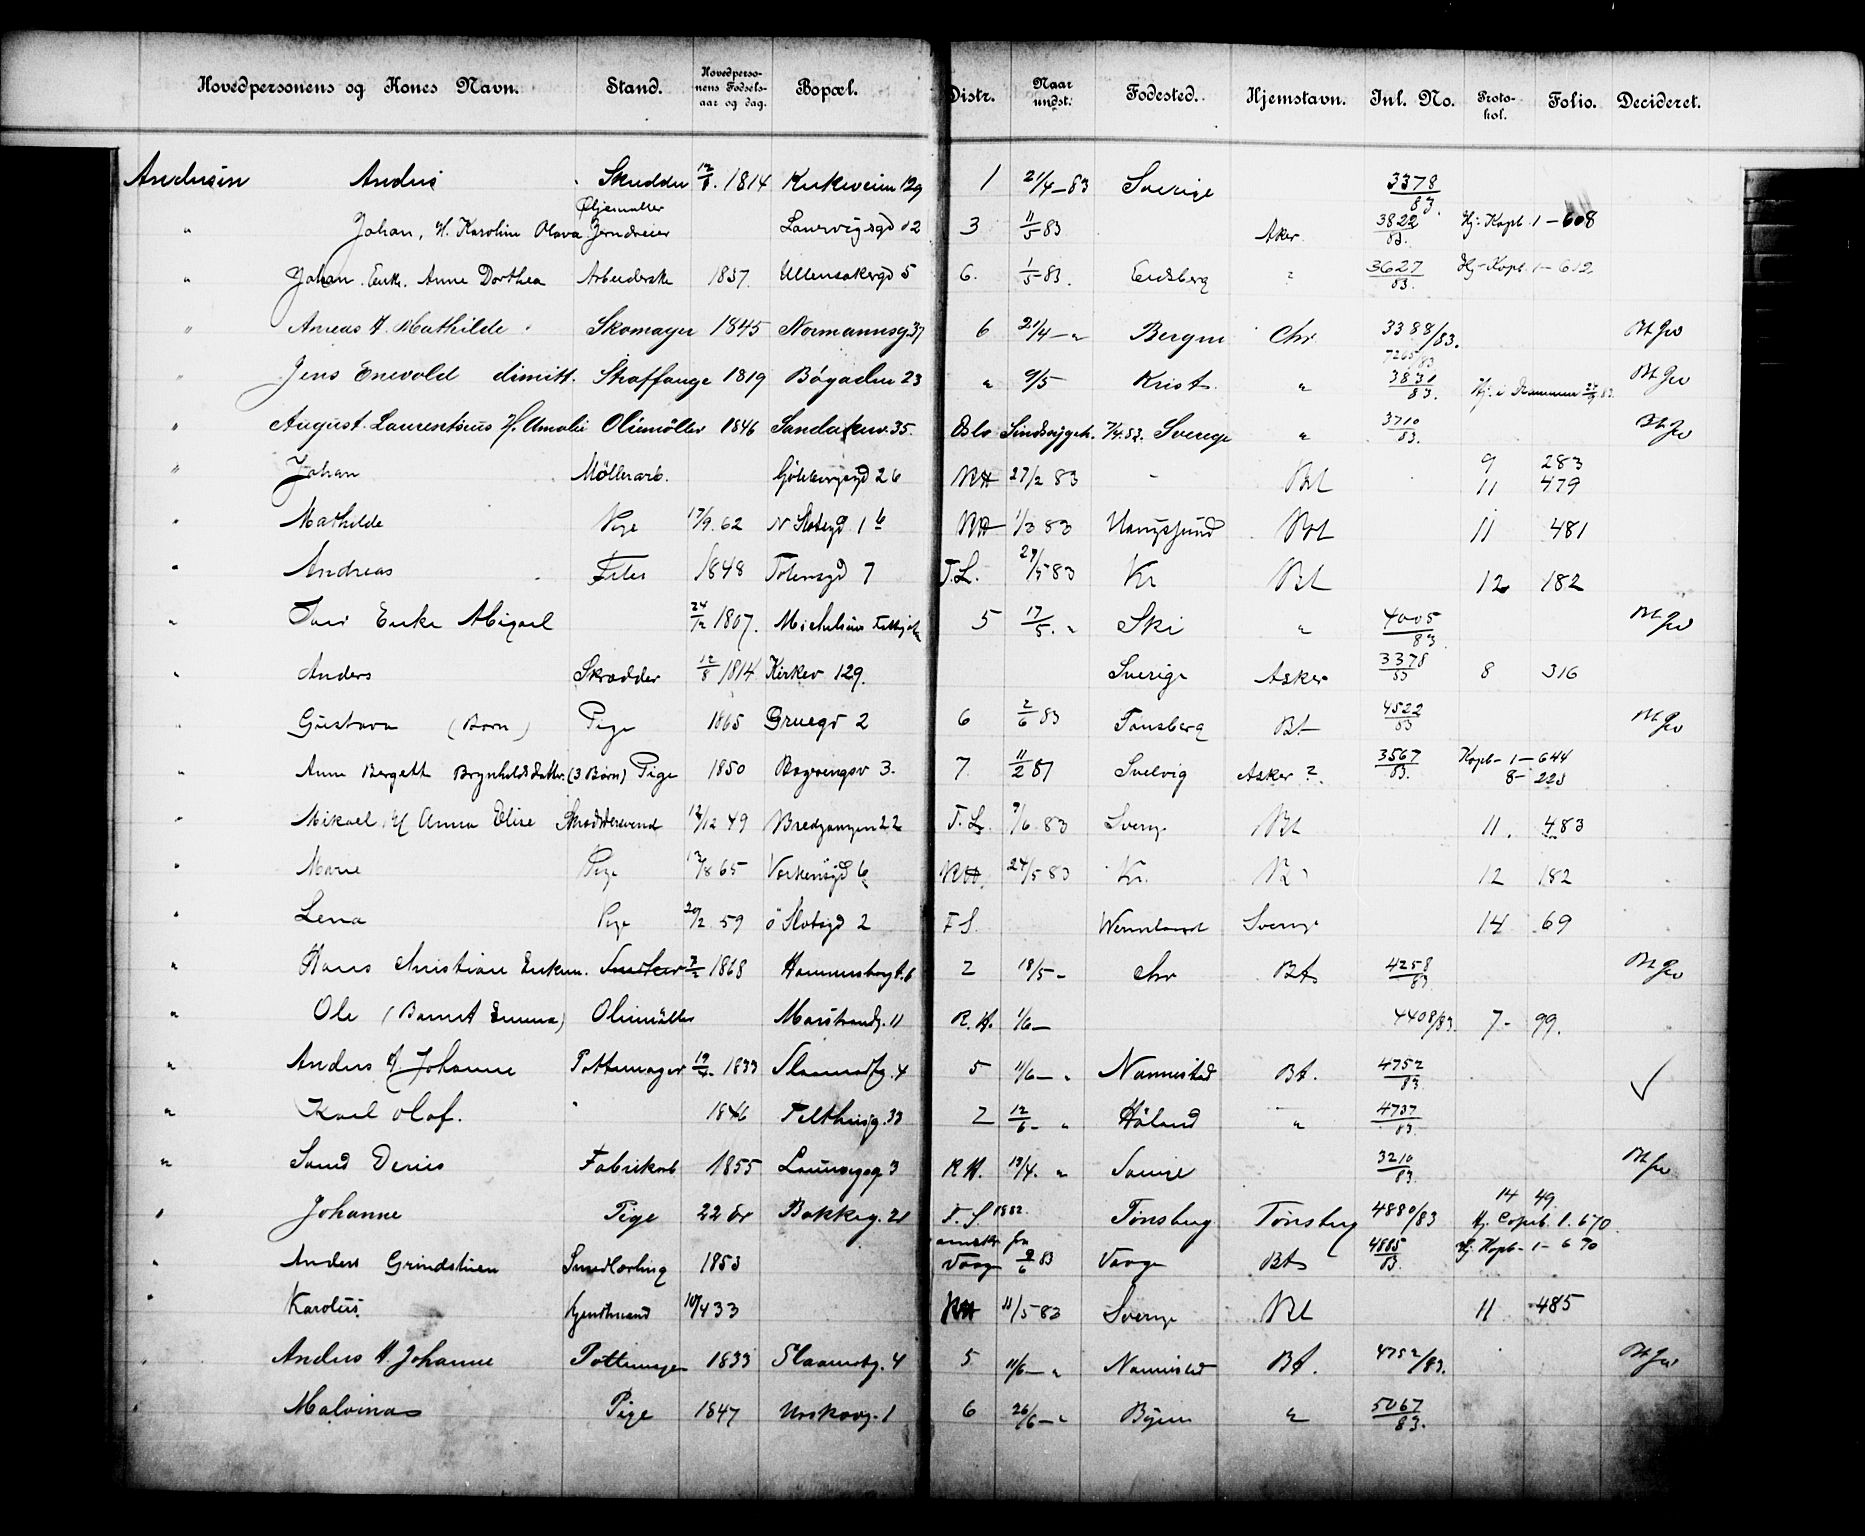 Hovedpersonens og Kones Navn. Stand. Hovedperso-nens Fødsels-aar og dag. Bopæl. Distr. Naar undst. Fødested. Hjemstavn. Inl. No. Proto-kol. Folio. Decideret.
Andersen Anders Skrædder 12/8. 1814 Kirkeveien 129 1 21/4-83 Sverige 3378/83.
" Johan, H. Karoline Olava Jerndreier Laurvigsgd 12 3 11/5 83 Aker 3822/83. Hj. Kopb. 1-608
" Johan. Enke. Anne Dorthea Arbeiderske 1837. Ullensakergd 5 6. 1/5 83. Eidsberg " 3627/83. Hj-Kopb. 1-612
" Andreas H. Mathilde Skomager 1845 Normannsg. 37 6 21/4- " Bergen Chr 3388/83. Bt Jev
" Jens Enevold dimitt. Straffange 1819 Bøgaden 23 " 9/5 Krist. " 7265/83 3831/83. Hj. i Drammen Bt Jev
" August Laurentsius H. Amalie Oliemöller 1846 Sandakerv. 35. Oslo Sindssygeh. 7/4.83. Sverige " 3710/83. Bt Jev
" Johan Møllerarb. Göteborgsgd 26 RH 27/2 83 - Bt 9 283
11 479
" Mathilde Pige 17/9. 62 N Slotsgd 1 b RH 1/3 83 Haugsund Bt 11 481
" Andreas Feier 1848 Totensgd 7 T.L. 29/5 83 Kr Bt 12 182
" Enke Abigael 24/12 1807. Michelsens 5 17/5. " Ski " 4005/83. Bt Jev
" Anders Skrædder 12/8 1814 Kirkev 129. Sverige Asker 3378/83 8 316
" Gustava (Barn) Pige 1865 Gruegd 2 6 2/6 83 Tønsberg Bt 4522/83 Bt Jev
" Anne Bergett Brynhildsdatter. (3 Børn) Pige 1850 3. 7. 11/2 81 Svelvig Asker ?. 3567/83. Kopb- 1-644
8- 228
" Mikael H Anna Elise Skræddersvend 12/12 49 Bredgangen 22 T.L. 9/6 83 Sverige Bt 11. 483
" Marie Pige 12/8 65 6 RH. 24/5 83 Kr. Bt 12 182
" Lena Pige 20/2 59 ö Slotsgd 2 F S. Wermland Sverige 14 69
" Hans Christian Enkem. Snedker 1868 Hammersborgt. 6 2 18/5- Chr Bt 4258/83 Bt Jev
" Ole (Barnet Emma) Oliemöller Marstrandg. 11 R.H. 1/6- 4408/83. 7- 99.
" Anders H Johanne Pottemager 1833 4 5 11/6- " Nannestad Bt. 4752/83 ✓
" Karl Olaf. " 1846 Telthusg. 33 2 12/6- " Höland " 4737/83.
" Fabrikarb 1855 Laurvigsg 3 R.H. 13/4. " 3210/83. Bt Jev
" Johanne Pige 22 år Bakkeg. 21 F.S. 1882. Tønsberg Tønsberg 4880/83 14 49.
Hj. Copib. 1. 670.
" Anders Grindstuen Smedlærling 1853 Vaage 2/6 83 Vaage Bt 4885/83. Hj. Kopb- 1- 670
" Karolus. 10/4 33 RH 11/5 83 Sverige Bt 11 485
" Anders H. Johanne Pottemager 1833 4 5 11/6- " Nannestad Bt. 4752/83. Bt Jev
" Malvinas Pige 1847 Urskovg. 1 6 26/6- " Byen " 5067/83.